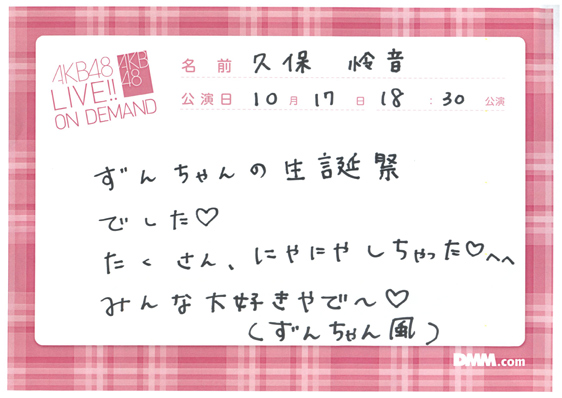 AKB48
LIVE!!
ON DEMAND
AKB
48
名前 久保 怜音
公演日 10月17日 18:30公演
ずんちゃんの生誕祭
でした♡
たくさん、にやにやしちゃった♡へへ
みんな大好きやで〜♡
(ずんちゃん風)
DMM.com